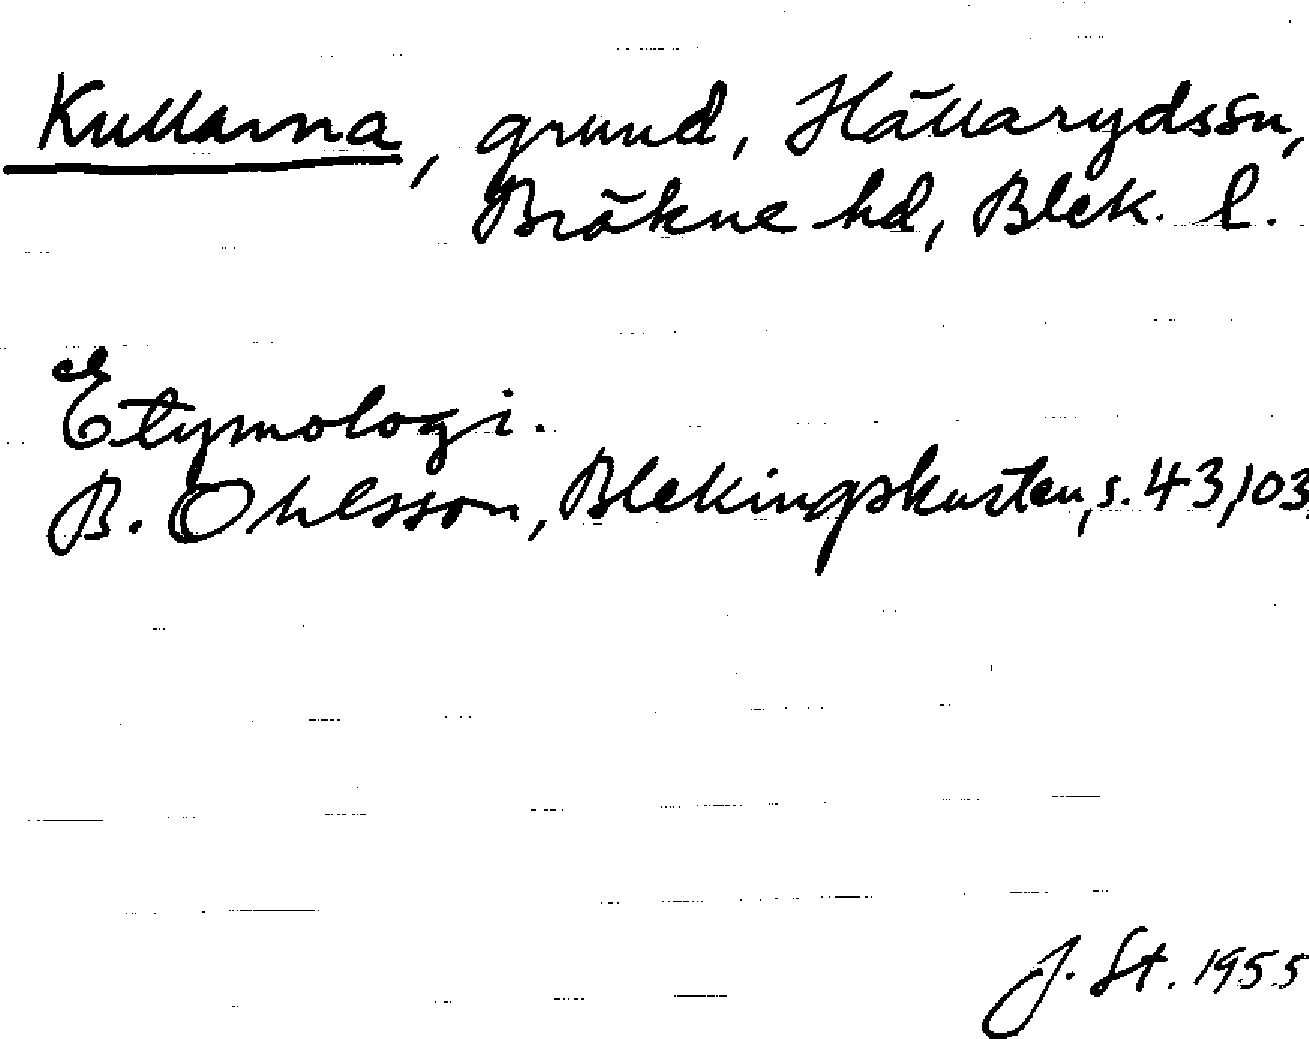 Kullarna, grund, Hällarydssn,
Bräkne hd, Blek. l.
Etymologi.
B. Ohlsson, Blekingskusten, s. 43, 103.
J. St. 1955